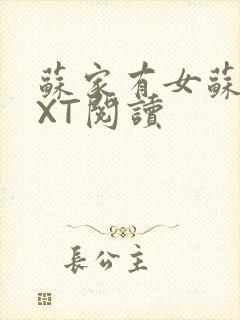 蘇家有女蘇
XT閱讀
長公主